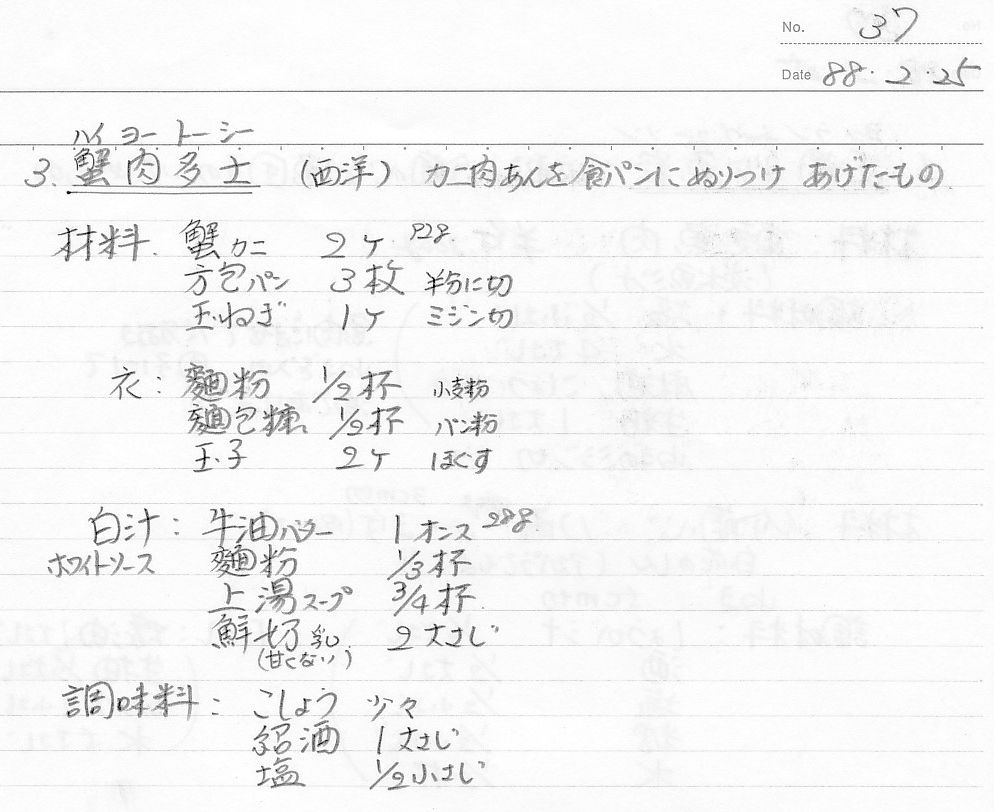 No. 37
Date 88.2.25
ハイ ヨー トーシー
3. 蟹肉多士 (西洋) カニ肉あんを食パンにぬりつけ あげたもの
材料. 蟹カニ 2ヶ P28
方包パン 3枚 半分に切
玉ねぎ 1ヶ ミジン切
衣: 麵粉 1/2杯 小麦粉
麵包糠 1/2杯 パン粉
玉子 2ヶ ほぐす
白汁: 牛油バター 1オンス 28g
ホワイトソース 麵粉 1/3杯
上湯スープ 3/4杯
鮮奶乳 2大さじ
(甘くない)
調味料: こしょう 少々
紹酒 1大さじ
塩 1/2小さじ